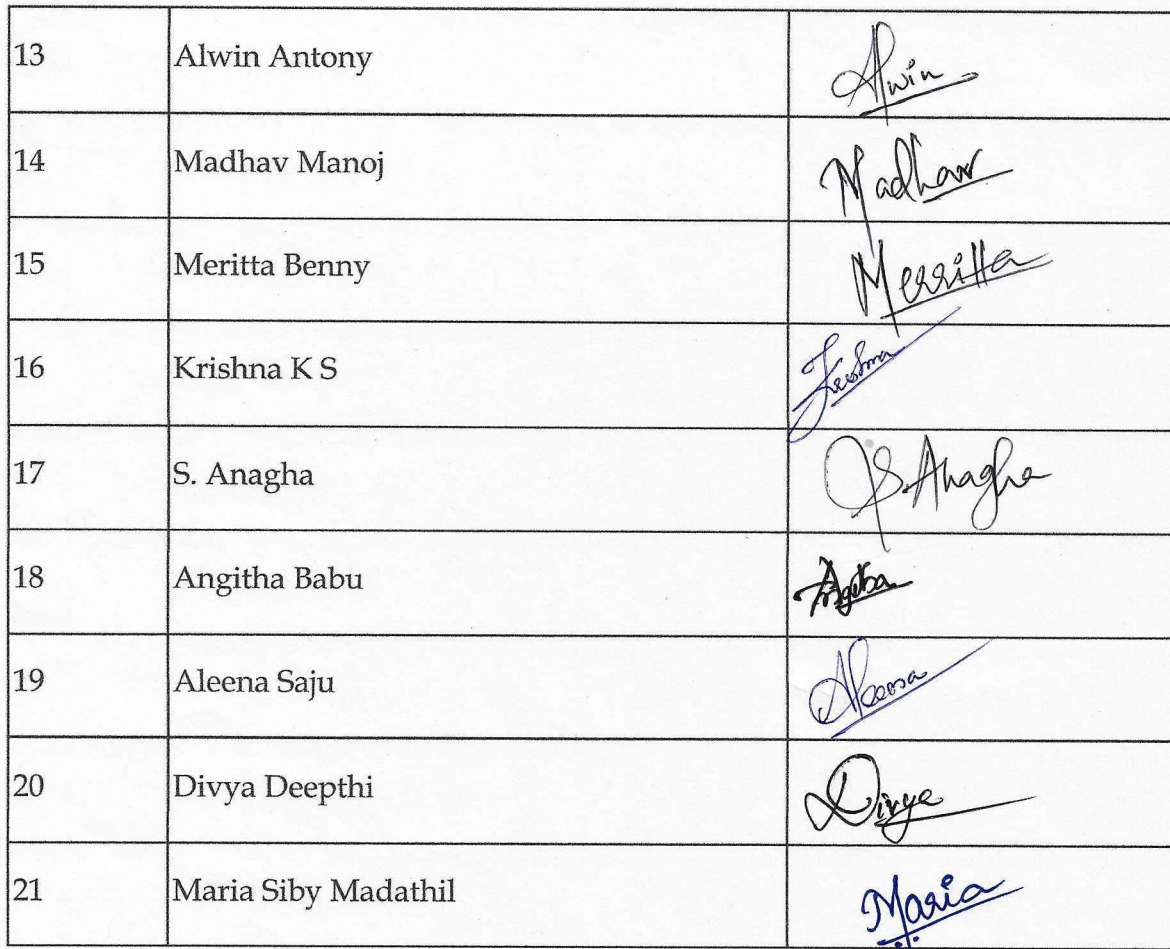 13 Alwin Antony Alwin
14 Madhav Manoj Madhav
15 Meritta Benny Merritta
16 Krishna K S
17 S. Anagha S. Anagha
18 Angitha Babu Angitha
19 Aleena Saju Aleena
20 Divya Deepthi Divya
21 Maria Siby Madathil Maria